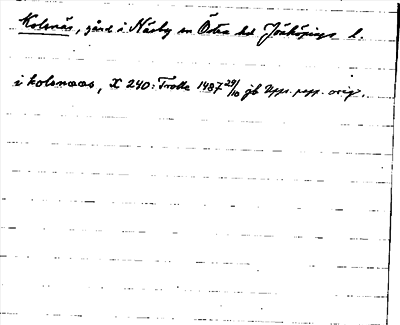 Kolsnäs, gård i Näsby sn Östra hd Jönköpings l.
i kolsnæs, X 240: Trolle 1487 29/10 jb Upps. papp. orig.